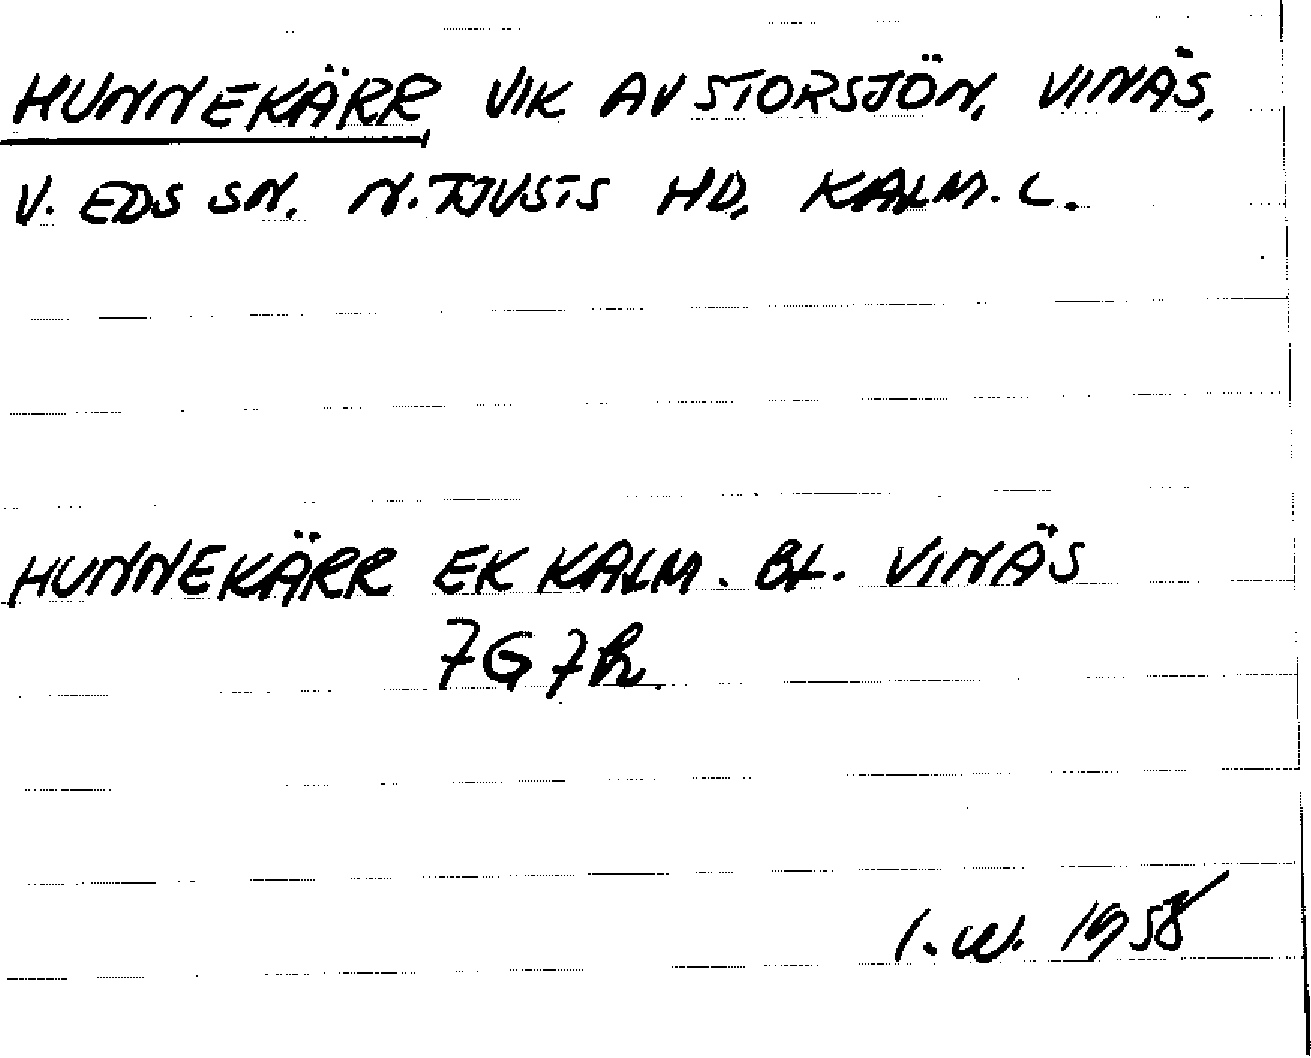 HUNNEKÄRR VIK AV STORSJÖN, VINÄS,
V. EDS SN. N. TJUSTS HD, KALM. L.
HUNNEKÄRR EK KALM. BL. VINÄS
7G 7h.
I. W. 1958